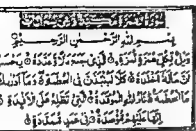 سورة الهمزة مكية وهي تسع آيات
بِسْمِ اللَّهِ الرَّحْمَٰنِ الرَّحِيمِ
وَيْلٌ لِكُلِّ هُمَزَةٍ لُمَزَةٍ ۝ الَّذِي جَمَعَ مَالًا وَعَدَّدَهُ ۝ يَحْسَبُ
أَنَّ مَالَهُ أَخْلَدَهُ ۝ كَلَّا لَيُنْبَذَنَّ فِي الْحُطَمَةِ ۝ وَمَا أَدْرَاكَ
مَا الْحُطَمَةُ ۝ نَارُ اللَّهِ الْمُوقَدَةُ ۝ الَّتِي تَطَّلِعُ عَلَى الْأَفْئِدَةِ ۝
إِنَّهَا عَلَيْهِمْ مُؤْصَدَةٌ ۝ فِي عَمَدٍ مُمَدَّدَةٍ ۝